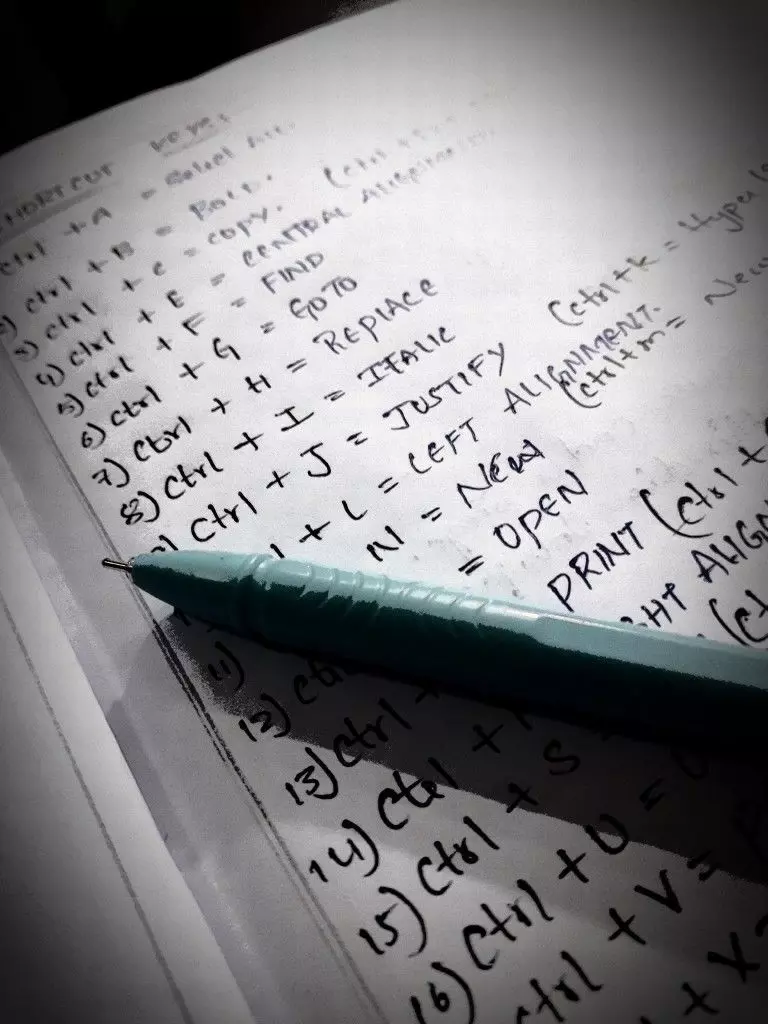 SHORTCUT KEYES
Ctrl + A = Select All.
2) Ctrl + B = BOLD.
3) Ctrl + C = COPY.
4) Ctrl + E = CENTRAL Alignment
5) Ctrl + F = FIND
6) Ctrl + G = GOTO
7) Ctrl + H = REPLACE
8) Ctrl + I = ITALIC (Ctrl+k = Hyper
Ctrl + J = JUSTIFY
+ L = LEFT ALIGNMENT. (Ctrl+m = New
N = NEW
= OPEN
PRINT (Ctrl +
HT ALIGN
11)
12) Ctrl
13) Ctrl +
14) Ctrl +
15) Ctrl + S =
16) Ctrl + U =
Ctrl + V =
+ X